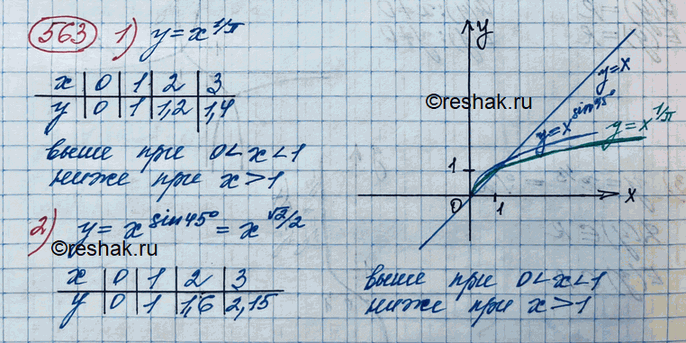 563 1) y = x^(1/π)
x | 0 | 1 | 2 | 3
y | 0 | 1 | 1,2 | 1,4
выше при 0 < x < 1
ниже при x > 1
2) y = x^(sin 45°) = x^(√2/2)
x | 0 | 1 | 2 | 3
y | 0 | 1 | 1,6 | 2,15
©reshak.ru
y
y = x
©reshak.ru
y = x^(sin 45°)
y = x^(1/π)
1
0 1 x
выше при 0 < x < 1
ниже при x > 1